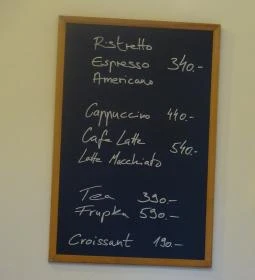 Ristretto
Espresso 340.-
Americano
Cappuccino 440.-
Cafe Latte
Latte Macchiato 540.-
Tea 390.-
Frupka 590.-
Croissant 190.-